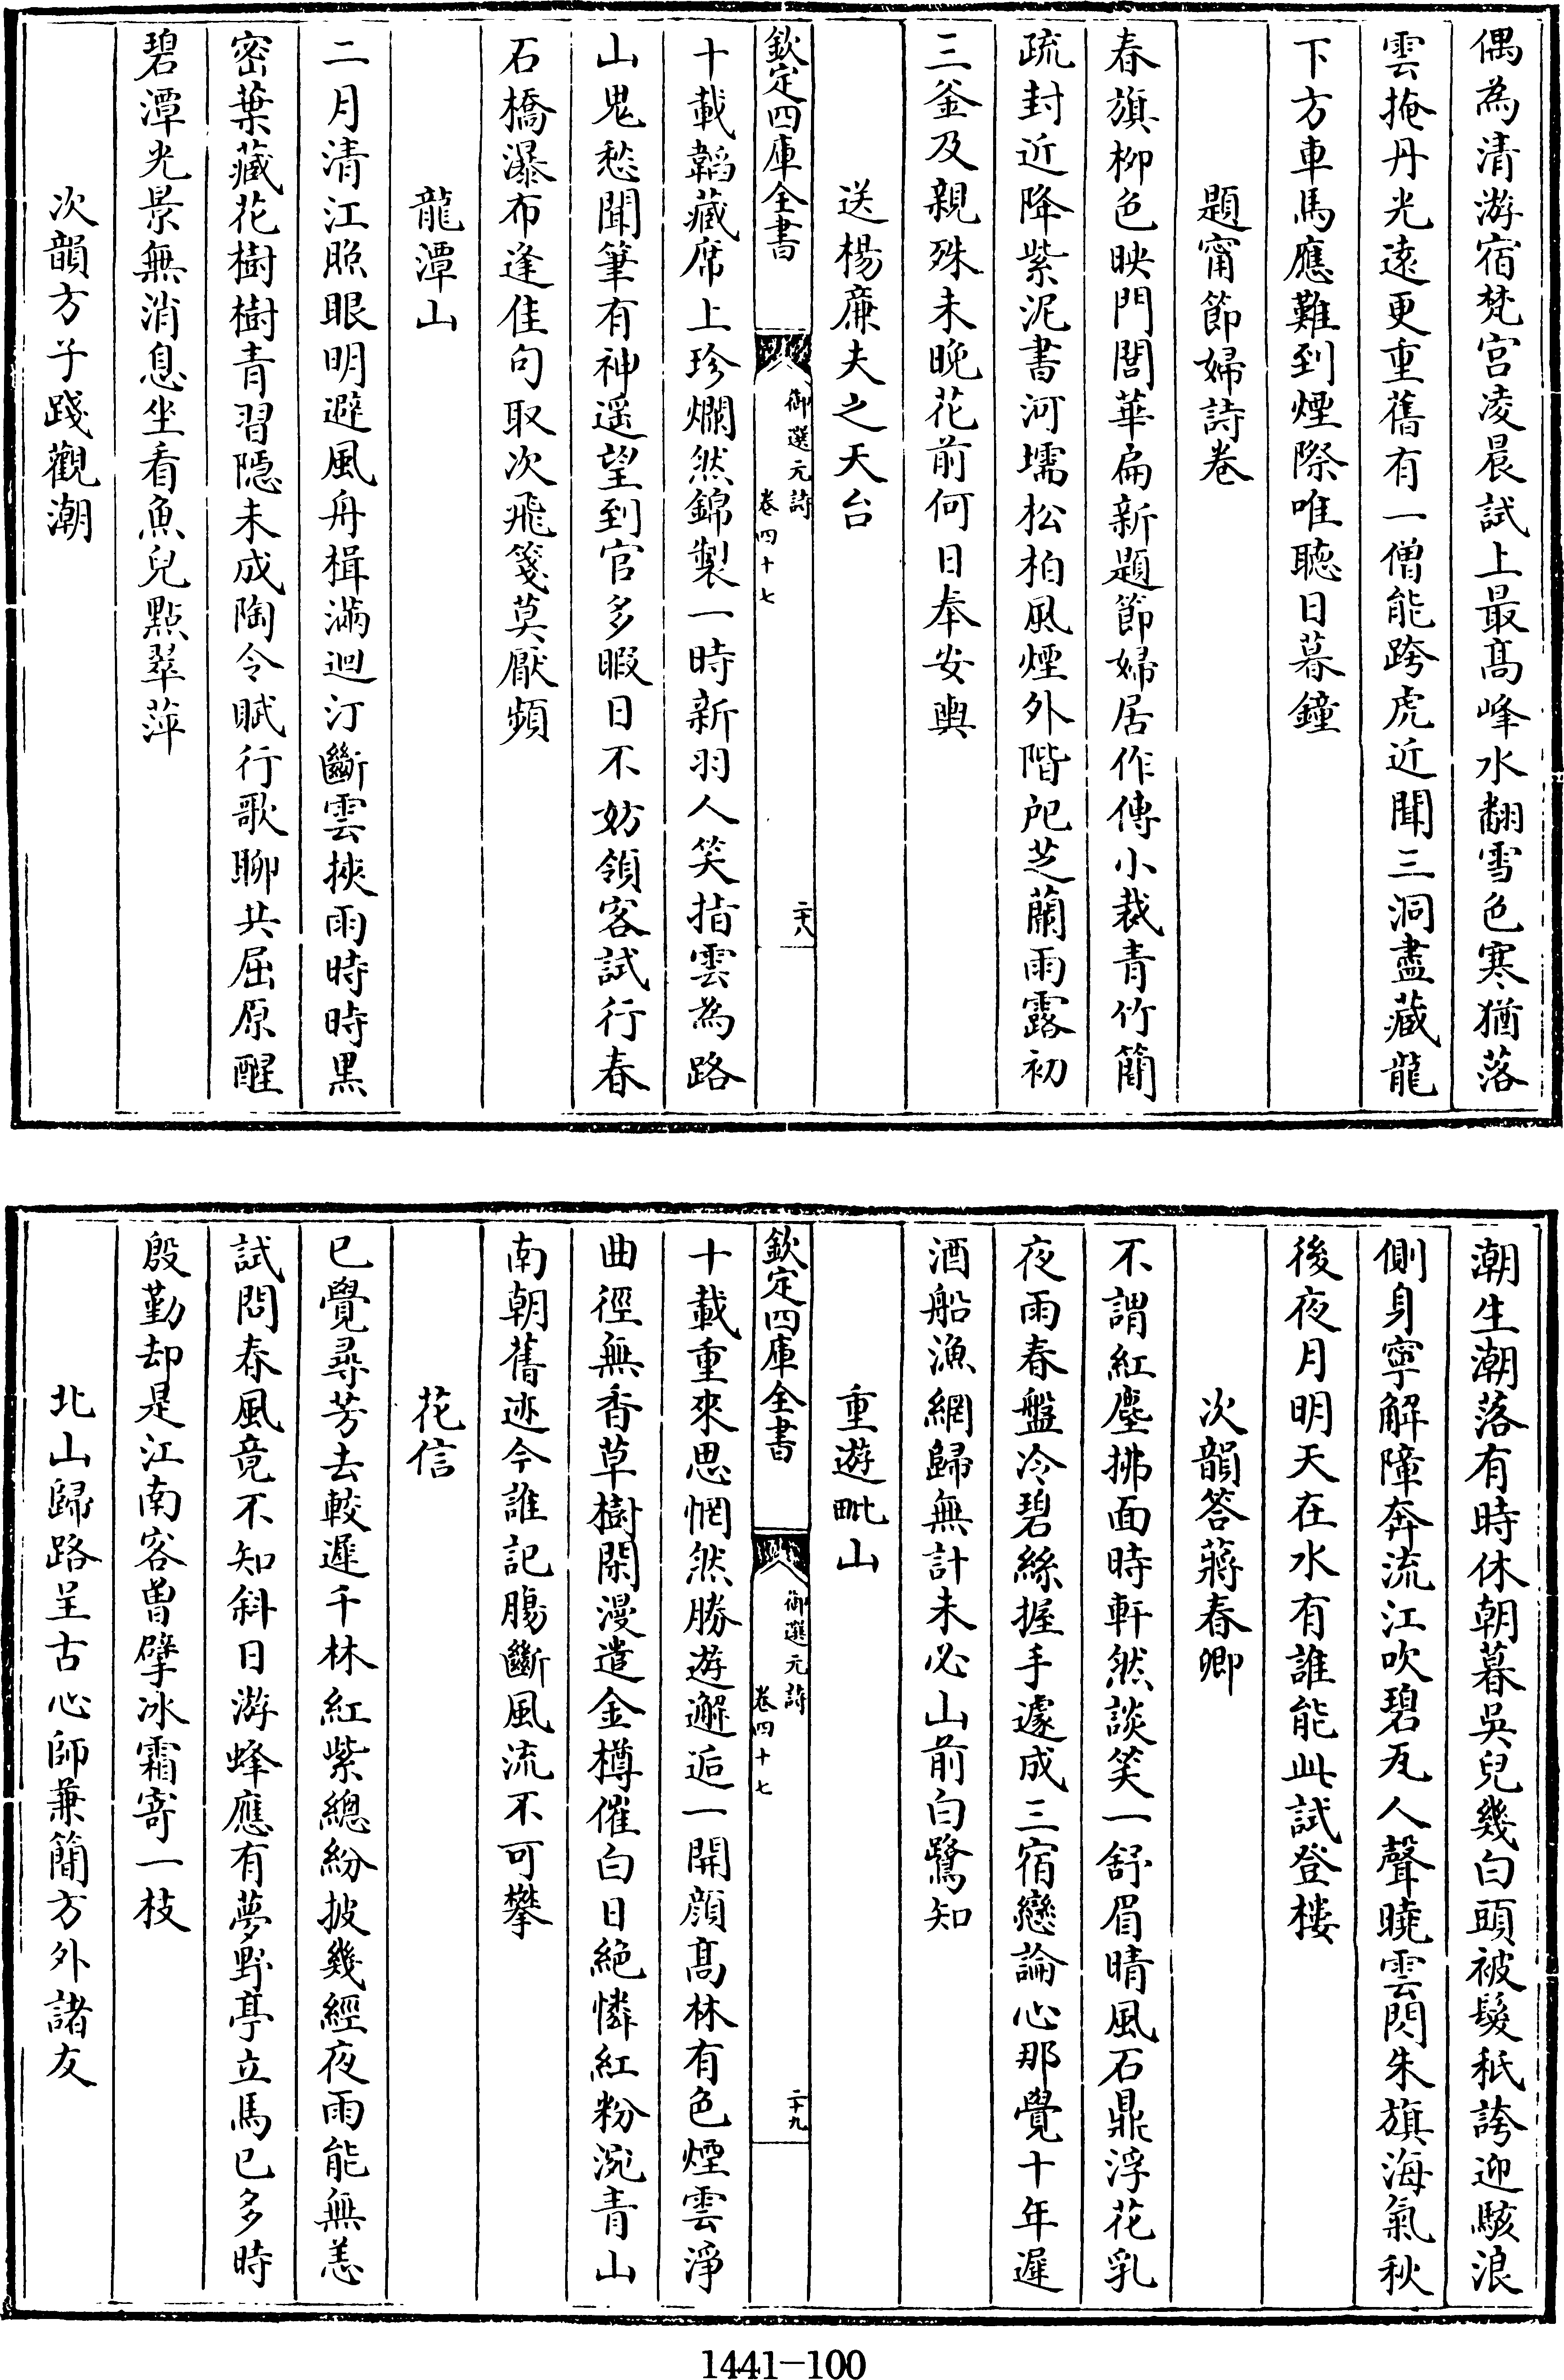 偶為清游宿梵宮凌晨試上最高峰水翻雪色寒猶落
雲掩丹光遠更重舊有一僧能跨虎近聞三洞盡藏龍
下方車馬應難到煙際唯聽日暮鐘
題甯節婦詩卷
春旗柳色映門閭華扁新題節婦居作傳小裁青竹簡
疏封近降紫泥書河壖松柏風煙外階戺芝蘭雨露初
三釜及親殊未晚花前何日奉安輿
送楊廉夫之天台
欽定四庫全書
御選元詩
卷四十七
二十八
十載韜藏席上珍爛然錦製一時新羽人笑指雲為路
山鬼愁聞筆有神遥望到官多暇日不妨領客試行春
石橋瀑布逢佳句取次飛箋莫厭頻
龍潭山
二月清江照眼明避風舟楫滿迴汀斷雲挾雨時時黑
密葉藏花樹樹青習隱未成陶令賦行歌聊共屈原醒
碧潭光景無消息坐看魚兒點翠萍
次韻方子踐觀潮
潮生潮落有時休朝暮吳兒幾白頭被髮秖誇迎駭浪
側身寧解障奔流江吹碧瓦人聲曉雲閃朱旗海氣秋
後夜月明天在水有誰能此試登樓
次韻答蔣春卿
不謂紅塵拂面時軒然談笑一舒眉晴風石鼎浮花乳
夜雨春盤冷碧絲握手遽成三宿戀論心那覺十年遲
酒船漁網歸無計未必山前白鷺知
重遊毗山
欽定四庫全書
御選元詩
卷四十七
二十九
十載重來思惘然勝遊邂逅一開顔高林有色煙雲淨
曲徑無香草樹閑漫遣金樽催白日絶憐紅粉涴青山
南朝舊迹今誰記腸斷風流不可攀
花信
已覺尋芳去較遲千林紅紫總紛披幾經夜雨能無恙
試問春風竟不知斜日游蜂應有夢野亭立馬已多時
殷勤却是江南客曾擘冰霜寄一枝
北山歸路呈古心師兼簡方外諸友
1441-100